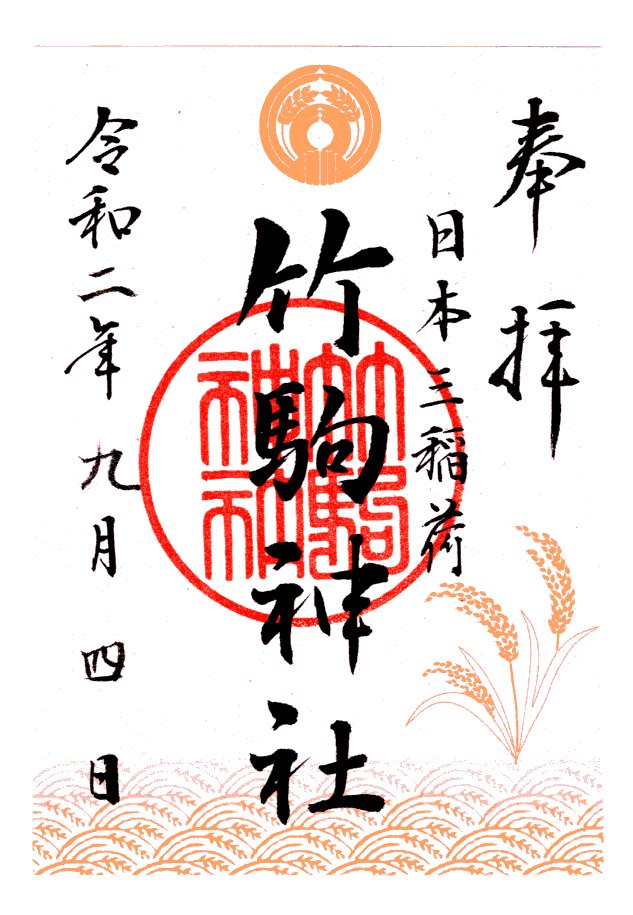 奉拝
日本三稲荷
竹駒神社
竹駒神社
令和二年九月四日